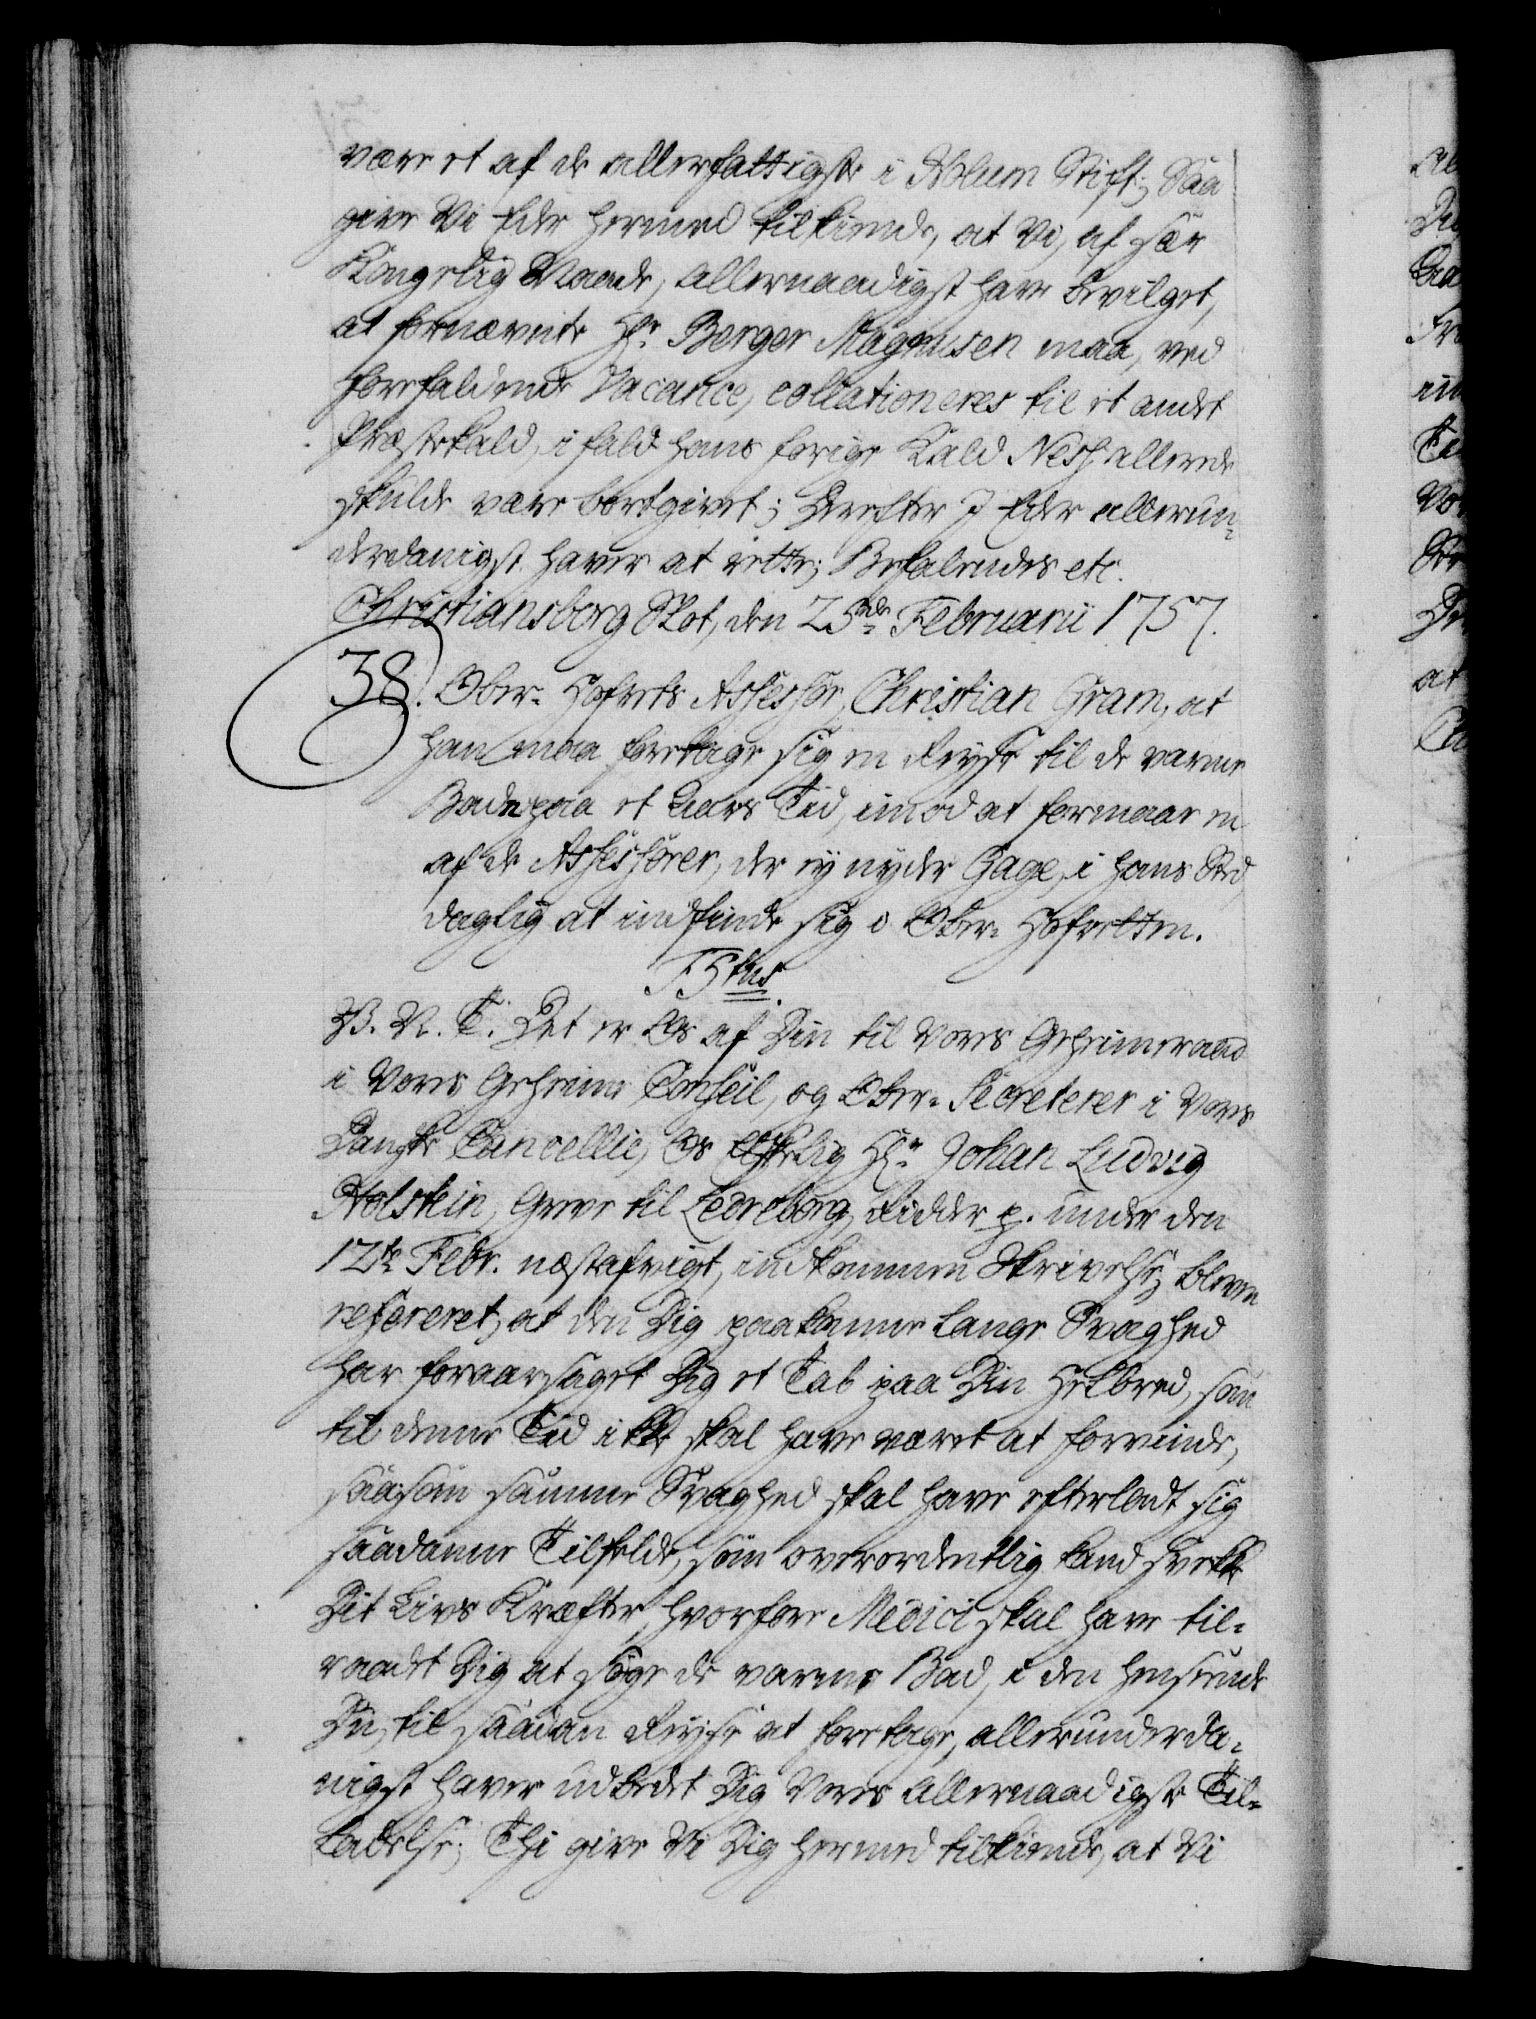 være et af de allerfattigste i Holum Stift; Saa
give Vi Eder hermed tilkiende, at Vi, af sær
Kongelig Naade, allernaadigst have bevilget,
at fornævnte Hr. Berger Magnusen maa, ved
forefaldende Vacance, collationeres til et andet
Præstekald, i fald hans forige Kald Nesh allerede
skulde være bortgivet; Derefter I Eder allerun-
derdanigst haver at rette; Befalendes etc.
Christiansborg Slot, den 25de Februarii 1757.
38. Ober-Hofrets Assessor, Christian Gram, at
han maa foretage sig en Reyse til de varme
Bade paa et Aars Tid, imod at formaae en
af de Assessorer, der ey nyder Gage, i hans Sted
daglig at indfinde sig i Ober-Hofretten.
F5tus
V. N. T. Det er Os af Din til Vores Geheimeraad
i Vores Geheime Conseil, og Ober-Secreterer i Vores
Danske Cancellie, Os Elskelig Hr. Johan Ludvig
Holstein, Greve til Ledreborg, Ridder p. under den
12te Febr. næstafvigt, indkomne Skrivelse, bleven
refereret, at den Dig paakomne lange Svaghed
har foraarsaget Dig et Tab paa Din Helbred, som
til denne Tid ikke skal have været at forvinde,
saasom samme Svaghed skal have efterladt sig
saadanne Tilfælde, som overordentlig have svekket
Dit Livs Kræfter, hvorfore Medici skal have til-
raadt Dig at søge de varme Bad, i den henseende
Du, til saadan Reyse at foretage, allerunderda-
nigst haver udbedet Dig Vores allernaadigste Til-
ladelse; Thi give Vi Dig hermed tilkiende, at Vi